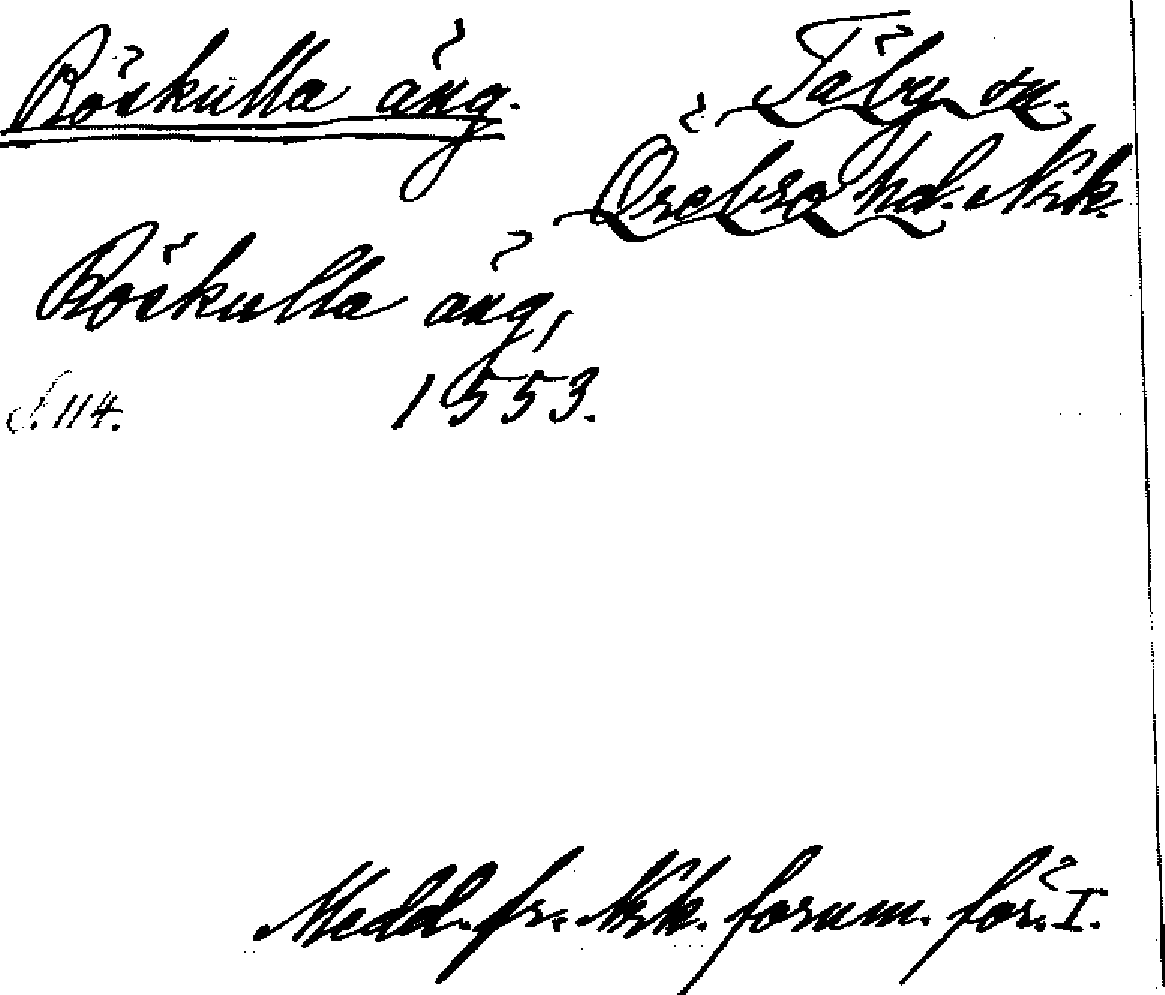 Röskulla äng.
Täby sn.
Örebro hd. Nrk.
Röskulla äng,
1553.
S. 114.
Medd. fr. Nrk. fornm. för. I.